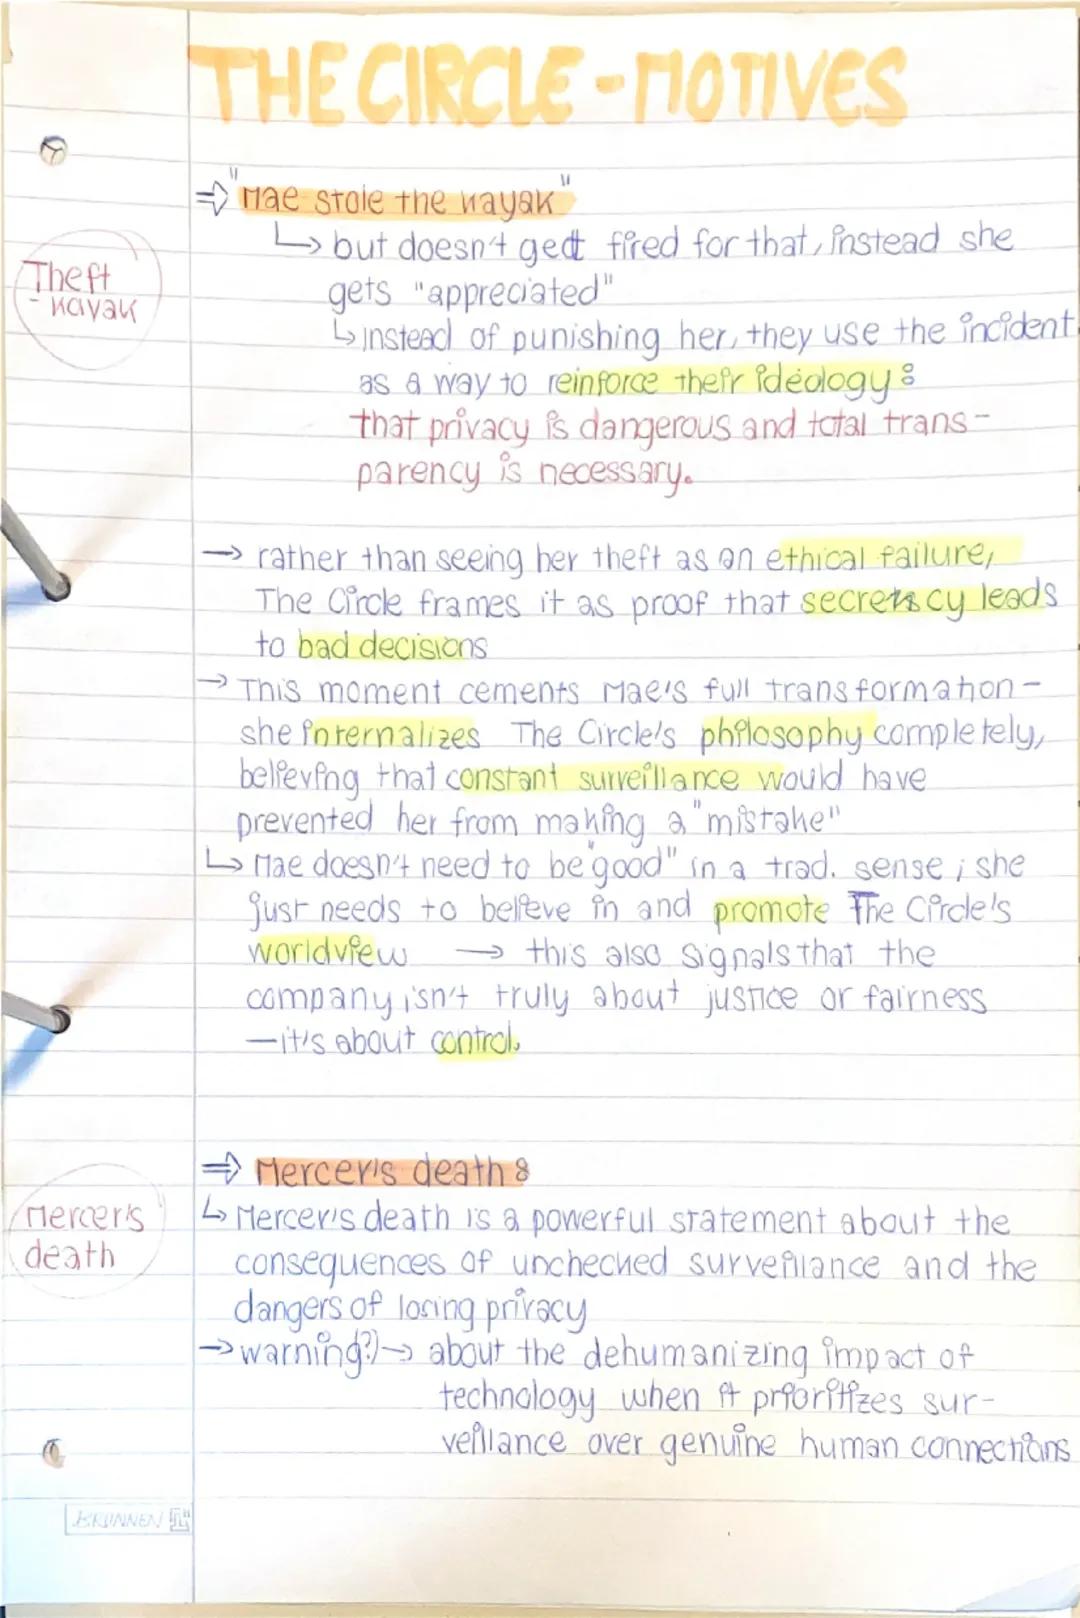 THE CIRCLE - MOTIVES
⇒ "Mae stole the kayak"
Theft
- Kayak
↳ but doesn't gedt fired for that, instead she
gets "appreciated"
↳ instead of punishing her, they use the incident
as a way to reinforce their ideology:
that privacy is dangerous and total trans-
parency is necessary.
→ rather than seeing her theft as an ethical failure,
The Circle frames it as proof that secrecy leads
to bad decisions
→ This moment cements Mae's full transformation -
she internalizes The Circle's philosophy completely,
believing that constant surveillance would have
prevented her from making a "mistake"
↳ Mae doesn't need to be "good" in a trad. sense; she
just needs to believe in and promote The Circle's
worldview → this also signals that the
company isn't truly about justice or fairness
— it's about control.
⇒ Mercer's death:
Mercer's
death
↳ Mercer's death is a powerful statement about the
consequences of unchecked surveillance and the
dangers of losing privacy
→ warning?) → about the dehumanizing impact of
technology when it prioritizes sur-
veillance over genuine human connections
BRUNNEN